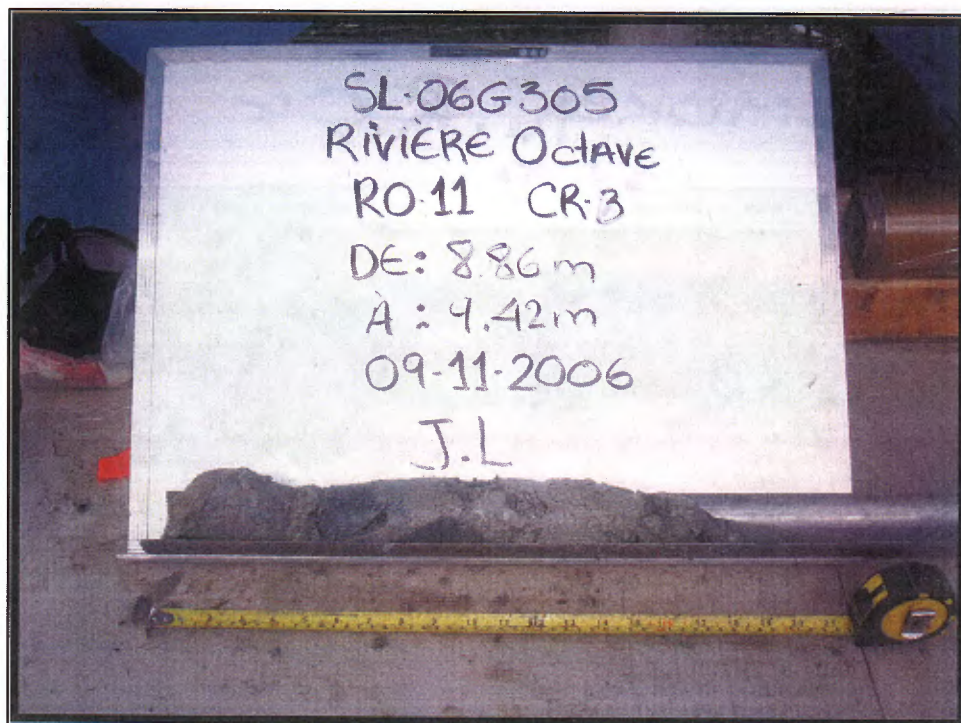 SL-06G305
RIVIÈRE OCTAVE
RO-11 CR-3
DE: 8.86m
À : 9.42m
09-11-2006
J.L